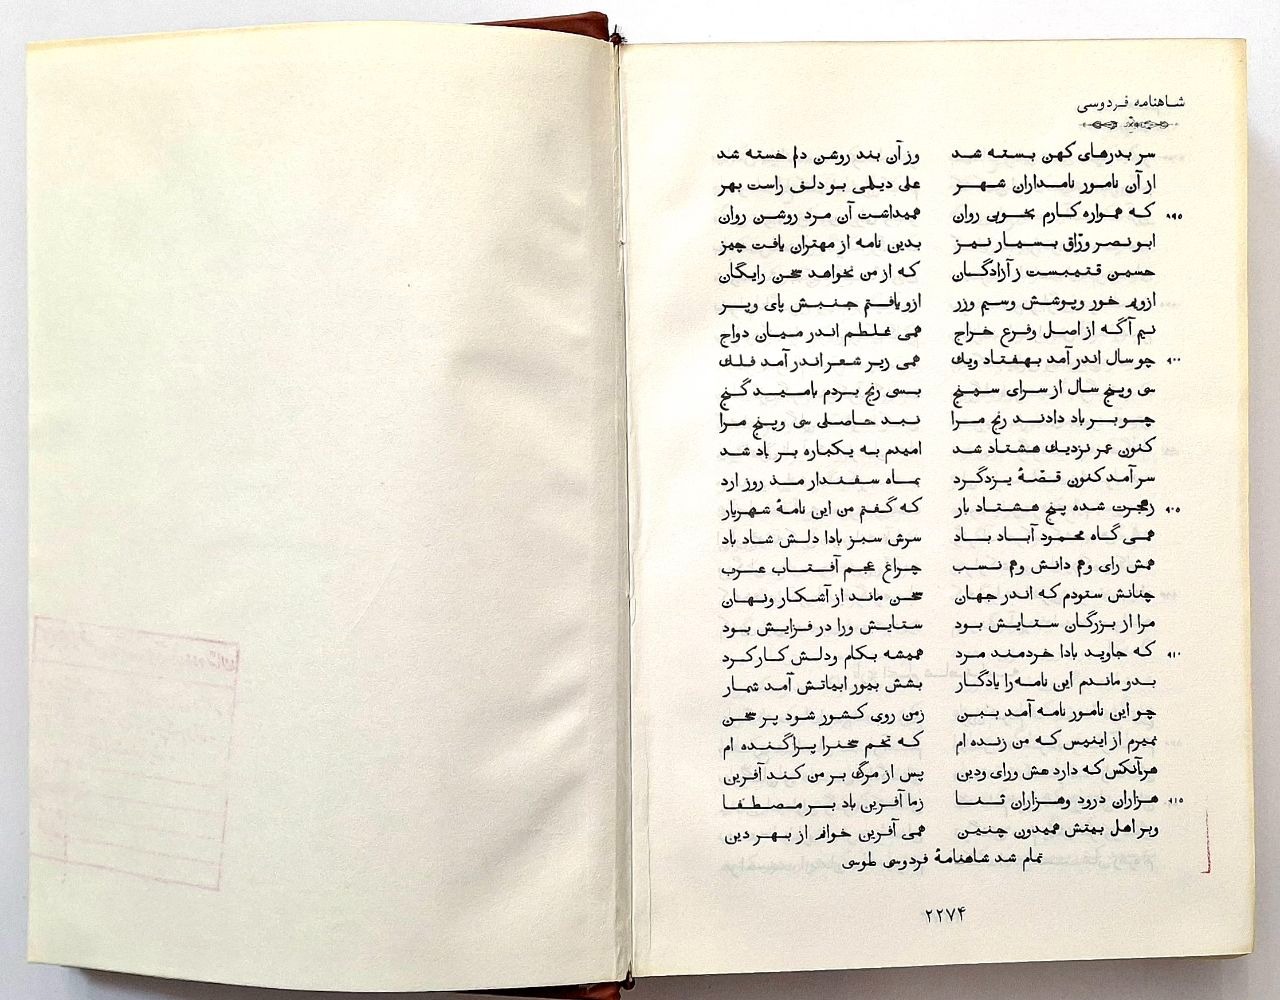 شاهنامه فردوسی
سر بدرهای کهن بسته شد وز آن بند روشن دلم خسته شد
از آن نامور نامداران شهر علی دیلمی بودلف راست بهر
۸۹۵ که همواره کارم بخوبی روان همیداشت آن مرد روشن روان
ابو نصر ورّاق بسیار نیز بدین نامه از مهتران یافت چیز
حسین قتیبست ز آزادگان که از من نخواهد سخن رایگان
ازویم خور وپوشش وسیم وزر ازو یافتم جنبش پای وپر
نیم آگه از اصل وفرع خراج همی غلطم اندر میان دواج
۹۰۰ چو سال اندر آمد بهفتاد ویك همی زیر شعر اندر آمد فلك
سی وپنج سال از سرای سپنج بسی رنج بردم بامید گنج
چو بر باد دادند رنج مرا نبد حاصلی سی وپنج مرا
کنون عمر نزدیك هشتاد شد امیدم به یکباره بر باد شد
سر آمد کنون قصّهٔ یزدگرد بماه سفندار مذ روز ارد
۹۰۵ زهجرت شده پنج هشتاد بار که گفتم من این نامهٔ شهریار
همی گاه محمود آباد باد سرش سبز بادا دلش شاد باد
همش رای وهم دانش وهم نسب چراغ عجم آفتاب عرب
چنانش ستودم که اندر جهان سخن ماند از آشکار ونهان
مرا از بزرگان ستایش بود ستایش ورا در فزایش بود
۹۱۰ که جاوید بادا خردمند مرد همیشه بکام ودلش کارکرد
بدو ماندم این نامه را یادگار بشش بیور ابیاتش آمد شمار
چو این نامور نامه آمد ببن زمن روی کشور شود پر سخن
نمیرم از اینپس که من زنده ام که تخم سخنرا پراگنده ام
هرآنکس که دارد هش ورای ودین پس از مرگ بر من کند آفرین
۹۱۵ هزاران درود وهزاران ثنا زما آفرین باد بر مصطفا
وبر اهل بیتش همیدون چنین همی آفرین خوانم از بهر دین
تمام شد شاهنامهٔ فردوسی طوسی
۲۲۷۴